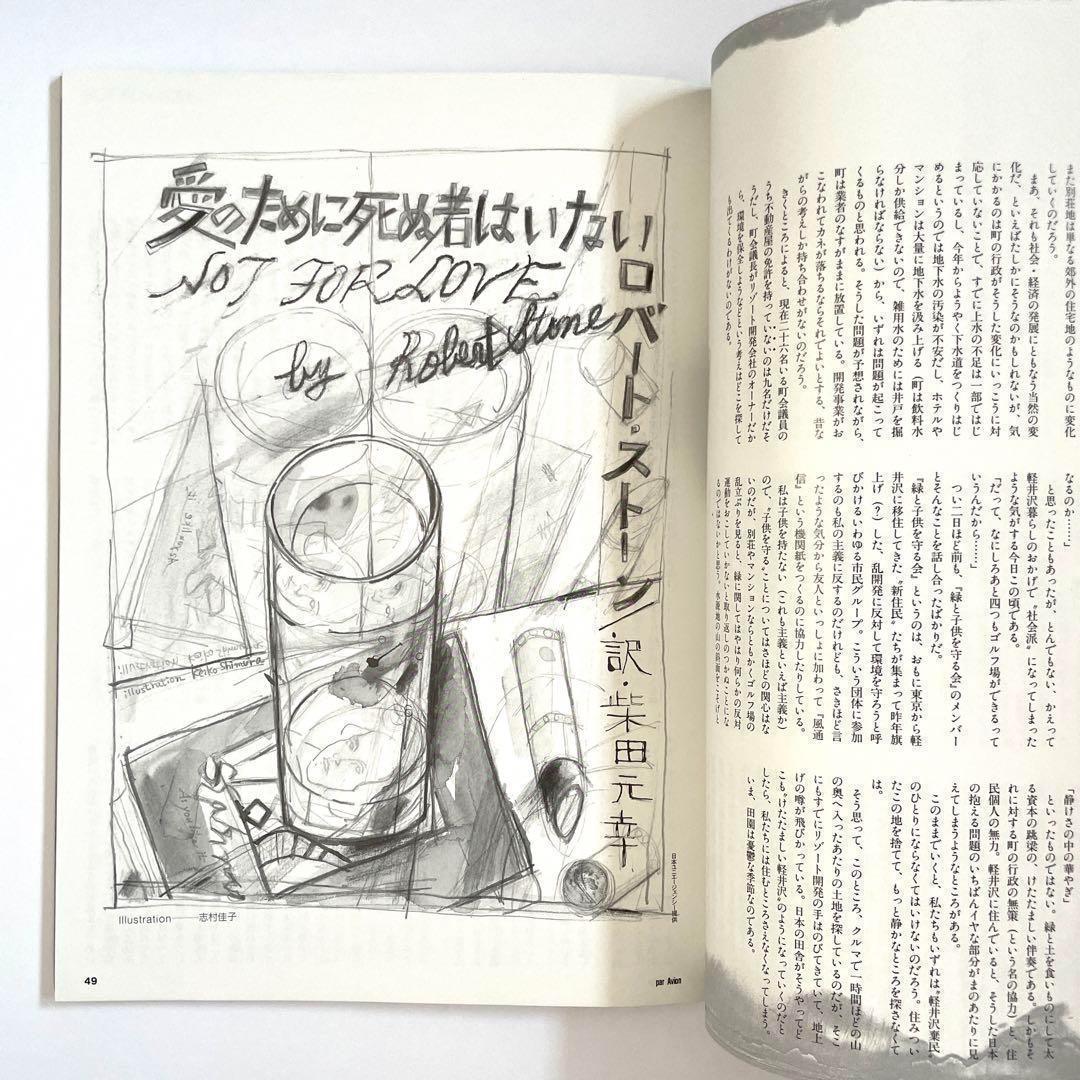 愛のために死ぬ者はいない
NOT FOR LOVE
by Robert Stone
ロバート・ストーン
訳・柴田元幸
illustration Keiko Shimura
日本ユニ・エージェンシー提供
Illustration——志村佳子
49
par Avion
また別荘地は単なる郊外の住宅地のようなものに変化
していくのだろう。
まあ、それも社会・経済の発展にともなう当然の変
化だ、といえばたしかにそうなのかもしれないが、気
にかかるのは町の行政がそうした変化にいっこうに対
応していないことで、すでに上水の不足は一部ではじ
まっているし、今年からようやく下水道をつくりはじ
めるというのでは地下水の汚染が不安だし、ホテルや
マンションは大量に地下水を汲み上げる（町は飲料水
分しか供給できないので、雑用水のためには井戸を掘
らなければならない）から、いずれは問題が起こって
くるものと思われる。そうした問題が予想されながら、
町は業者のなすがままに放置している。開発事業がお
こなわれてカネが落ちるならそれでよいとする、昔な
がらの考えしか持ち合わせがないのだろう。
きくところによると、現在二十六名いる町会議員の
うち不動産屋の免許を持っていないのは九名だけだそ
うだし、町会議長がリゾート開発会社のオーナーだか
ら、環境を保全しようなどという考えはどこを探して
も出てくるわけがないのである。
なるのか……」
と思ったこともあったが、とんでもない、かえって
軽井沢暮らしのおかげで〝社会派〟になってしまった
ような気がする今日この頃である。
「だって、なにしろあと四つもゴルフ場ができるって
いうんだから……」
つい二日ほど前も、『緑と子供を守る会』のメンバー
とそんなことを話し合ったばかりだ。
『緑と子供を守る会』というのは、おもに東京から軽
井沢に移住してきた〝新住民〟たちが集まって昨年旗
上げ（？）した、乱開発に反対して環境を守ろうと呼
びかけるいわゆる市民グループ。こういう団体に参加
するのも私の主義に反するのだけれども、さきほど言
ったような気分から友人といっしょに加わって『風通
信』という機関紙をつくるのに協力したりしている。
私は子供を持たない（これも主義といえば主義か）
ので、〝子供を守る〟ことについてはさほどの関心はな
いのだが、別荘やマンションならともかくゴルフ場の
乱立ぶりを見ると、緑に関してはやはり何らかの反対
運動をおこしていかないと取り返しのつかぬことにな
るのではないかと思う。水源地の山の斜面をこそげと
「静けさの中の華やぎ」
といったものではない。緑と土を食いものにして太
る資本の跳梁の、けたたましい伴奏である。しかもそ
れに対する町の行政の無策（という名の協力）と、住
民個人の無力。軽井沢に住んでいると、そうした日本
の抱える問題のいちばんイヤな部分がまのあたりに見
えてしまうようなところがある。
このままでいくと、私たちもいずれは〝軽井沢棄民〟
のひとりにならなくてはいけないのだろう。住みつい
たこの地を捨てて、もっと静かなところを探さなくて
は。
そう思って、このところ、クルマで一時間ほどの山
の奥へ入ったあたりの土地を探しているのだが、そこ
にもすでにリゾート開発の手はのびてきていて、地上
げの噂が飛びかっている。日本の田舎がそうやってど
こも〝けたたましい軽井沢〟のようになっていくのだと
したら、私たちには住むところさえなくなってしまう。
いま、田園は憂鬱な季節なのである。